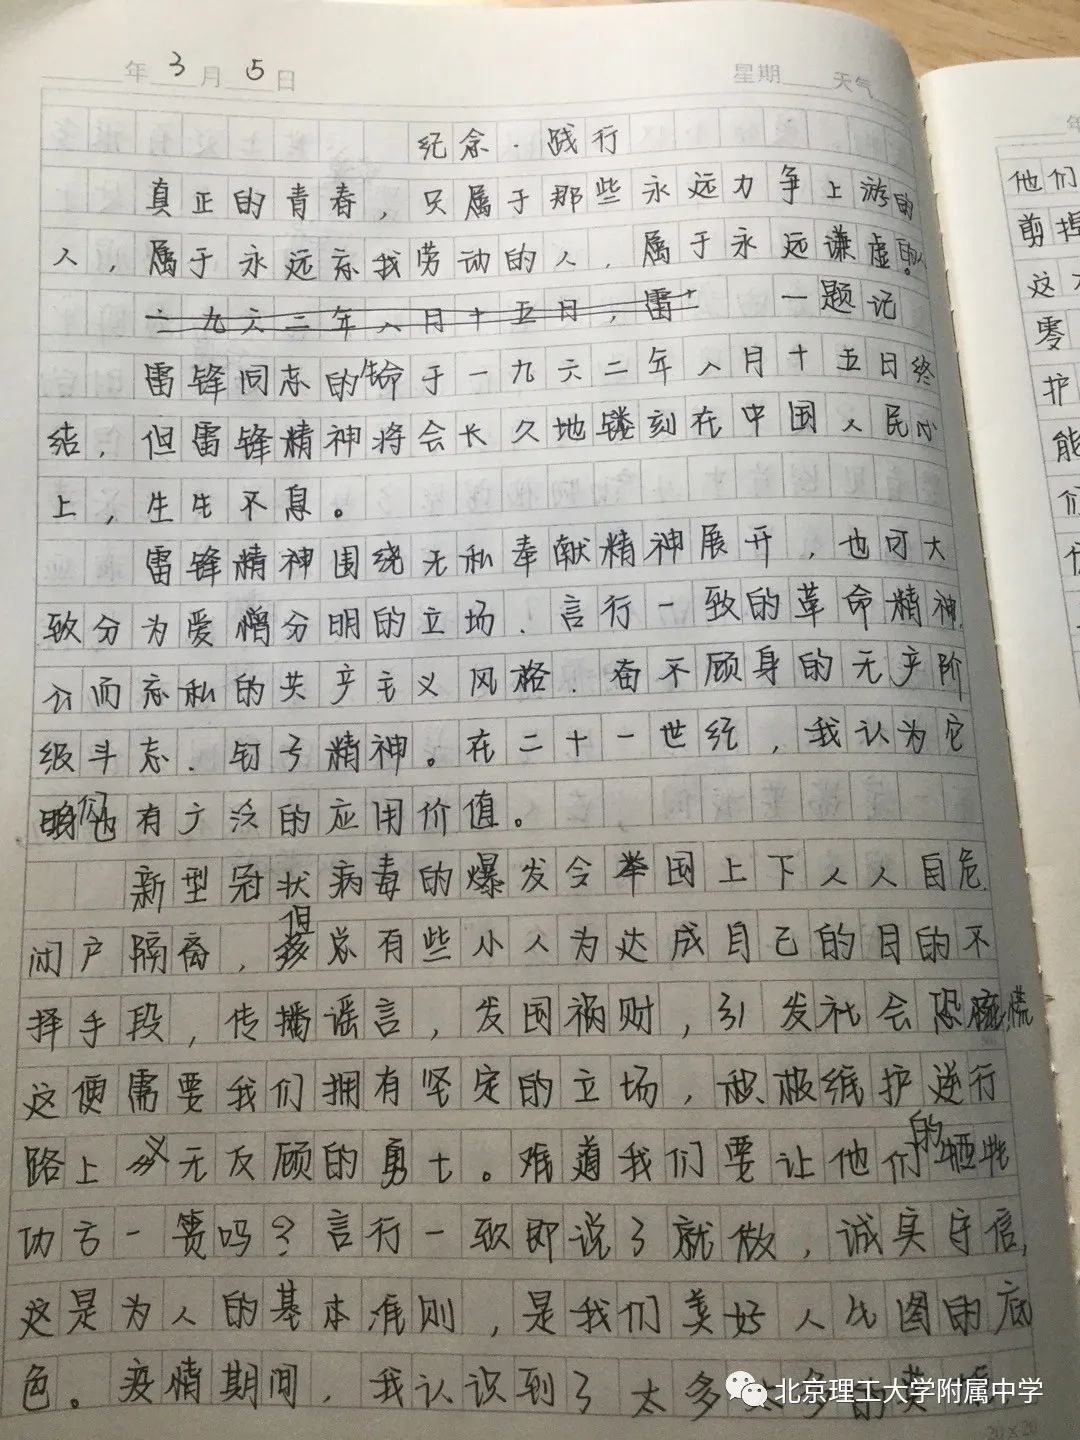 年 3 月 5 日 星期 天气
纪念·践行
真正的青春，只属于那些永远力争上游的
人，属于永远忘我劳动的人，属于永远谦虚的人。
一九六二年八月十五日，雷 一题记
雷锋同志的生命于一九六二年八月十五日终
结，但雷锋精神将会长久地镂刻在中国人民心
上，生生不息。
雷锋精神围绕无私奉献精神展开，也可大
致分为爱憎分明的立场、言行一致的革命精神、
公而忘私的共产主义风格、奋不顾身的无产阶
级斗志、钉子精神。在二十一世纪，我认为它
们也有广泛的应用价值。
新型冠状病毒的爆发令举国上下人人自危，
闭户隔离，但总有些小人为达成自己的目的不
择手段，传播谣言，发国祸财，引发社会恐慌，
这便需要我们拥有坚定的立场，积极维护逆行
路上义无反顾的勇士。难道我们要让他们的牺牲
功亏一篑吗？言行一致即说了就做，诚实守信，
这是为人的基本准则，是我们美好人生图的底
色。疫情期间，我认识到了太多太多的英
年
他们
剪掉
这
零
护
能
们
北京理工大学附属中学
20×20